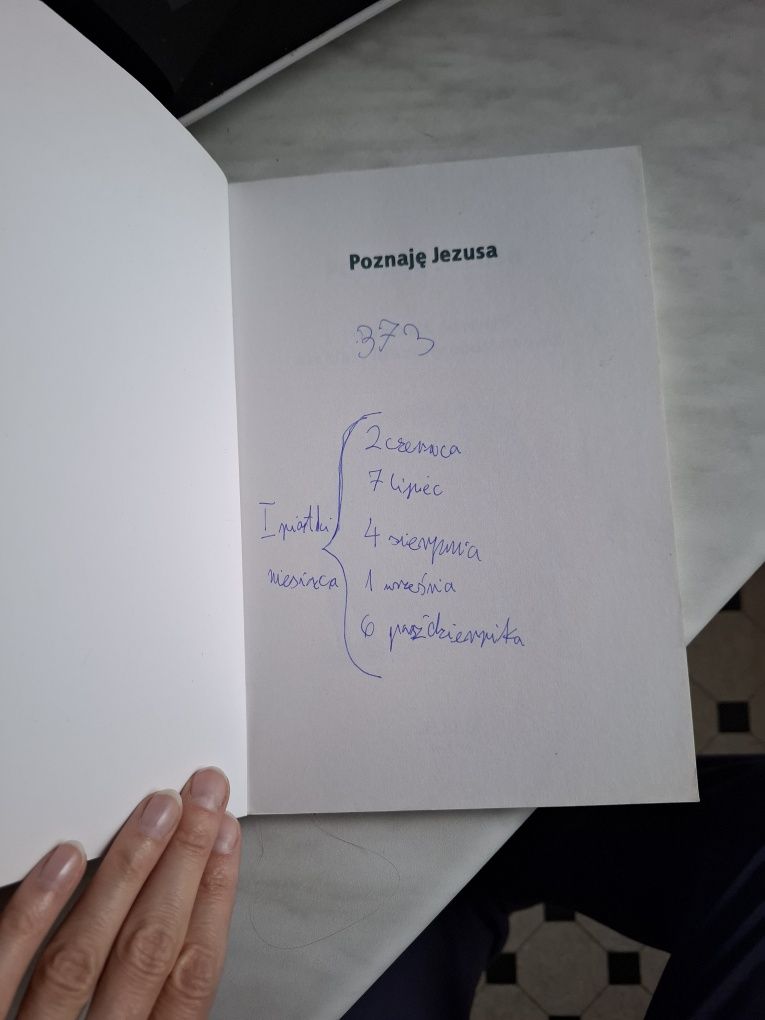 Poznaję Jezusa
373
I piątki
miesiąca
2 czerwca
7 lipiec
4 sierpnia
1 września
6 października